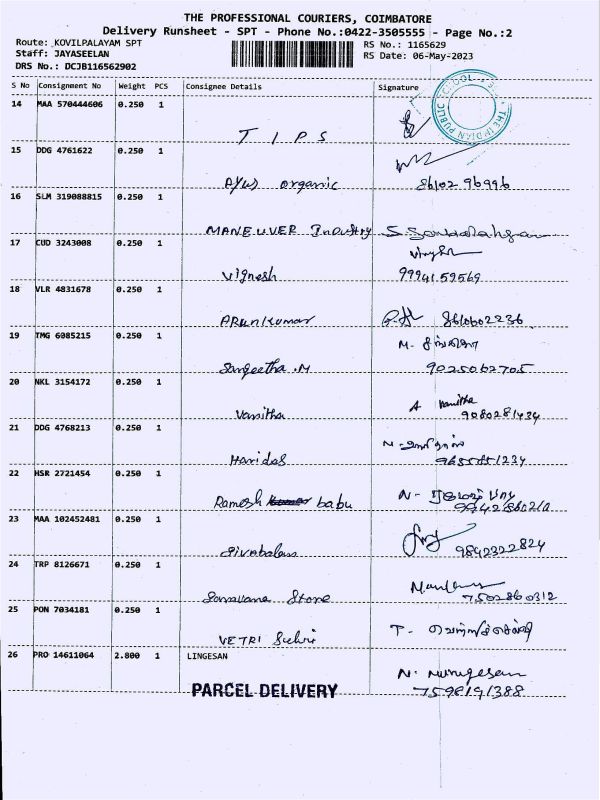 THE PROFESSIONAL COURIERS, COIMBATORE
Delivery Runsheet - SPT - Phone No.:0422-3505555 - Page No.:2
Route: KOVILPALAYAM SPT
RS No.: 1165629
Staff: JAYASEELAN
RS Date: 06-May-2023
DRS No.: DCJB116562902
S No Consignment No Weight PCS Consignee Details Signature
THE INDIAN PUBLIC SCHOOL
14 MAA 570444606 0.250 1
T I P S
15 DDG 4761622 0.250 1
Ayus organic 86102 96996
16 SLM 319088815 0.250 1
MANEUVER Industry
17 CUD 3243008 0.250 1
Vignesh 99941 59569
18 VLR 4831678 0.250 1
ARunkumar 8610602236
19 TMG 6085215 0.250 1
Sangeetha .M 9025062705
20 NKL 3154172 0.250 1
A Vanitha
Vanitha 9080281434
21 DDG 4768213 0.250 1
Haridas
22 HSR 2721454 0.250 1
Ramesh babu
23 MAA 102452481 0.250 1
Sivabalan 9842322824
24 TRP 8126671 0.250 1
Saravana Store 7502860312
25 PON 7034181 0.250 1
VETRI Selvi
26 PRO 14611064 2.800 1 LINGESAN
N. Murugesan
PARCEL DELIVERY 7598191388